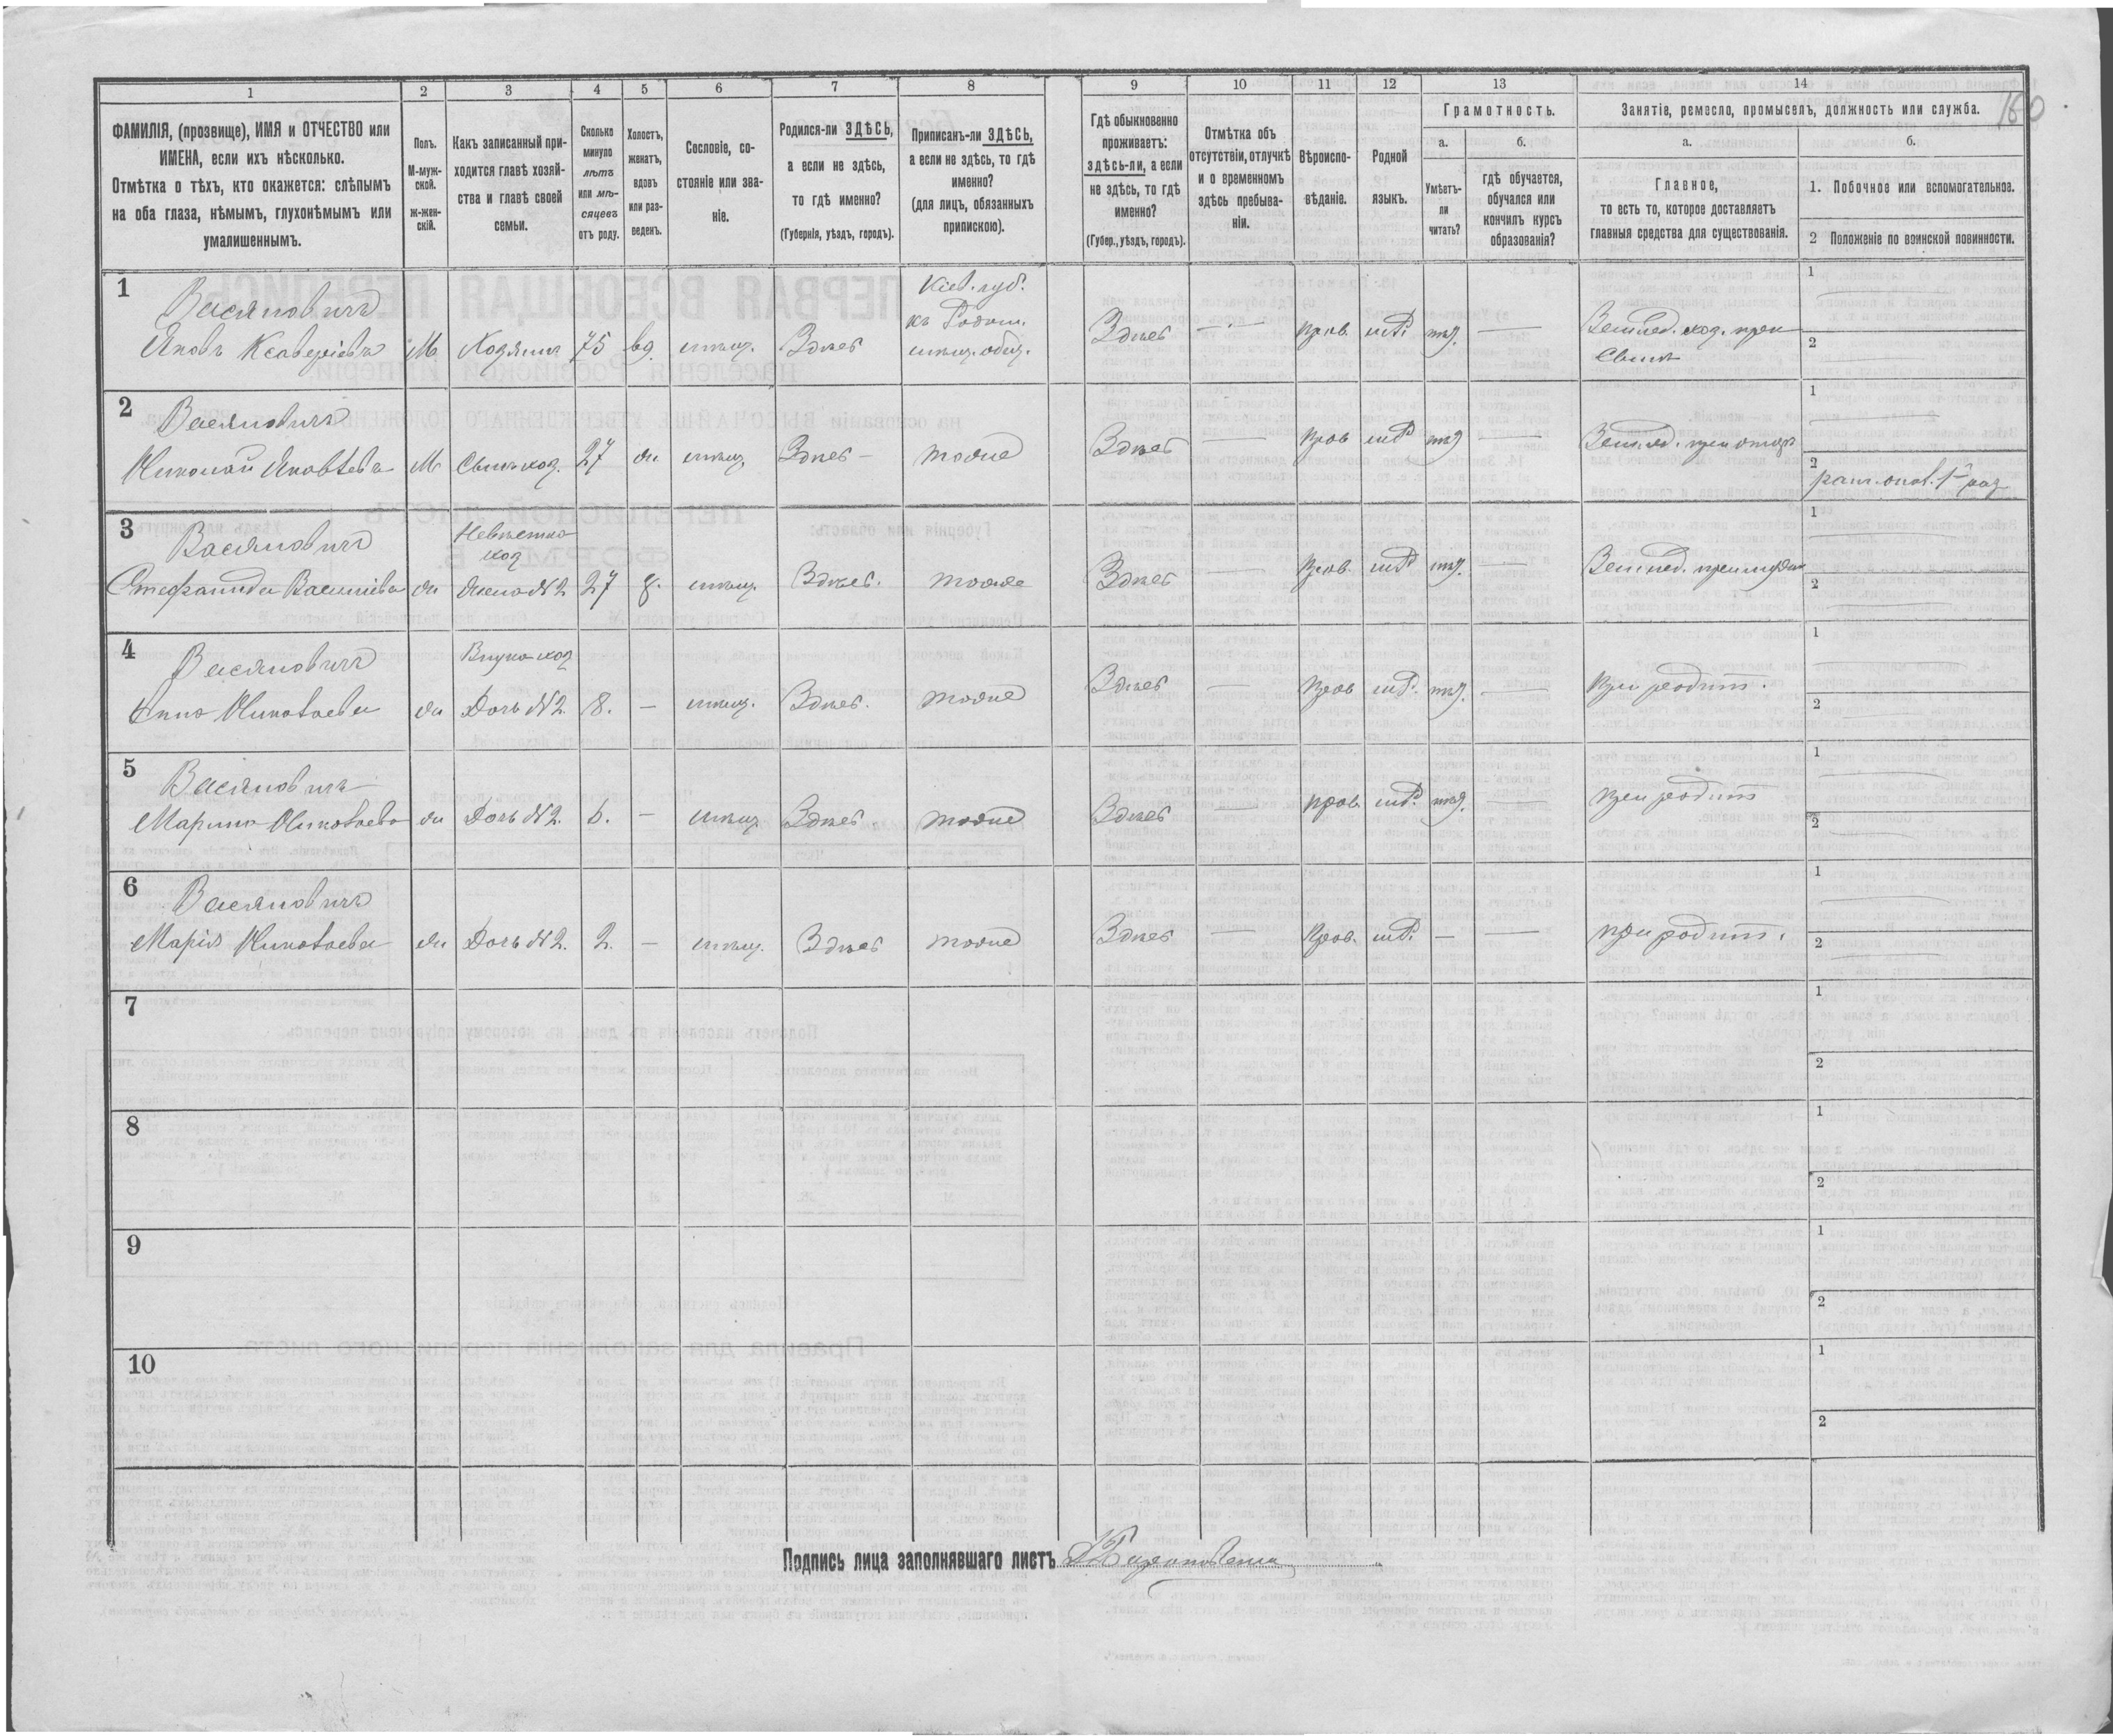 160
1
2
3
4
5
6
7
8
9
10
11
12
13
14
ФАМИЛІЯ, (прозвище), ИМЯ и ОТЧЕСТВО или
ИМЕНА, если ихъ нѣсколько.
Отмѣтка о тѣхъ, кто окажется: слѣпымъ
на оба глаза, нѣмымъ, глухонѣмымъ или
умалишеннымъ.
Полъ.
М-муж-
ской.
ж-жен-
скій.
Какъ записанный при-
ходится главѣ хозяй-
ства и главѣ своей
семьи.
Сколько
минуло
лѣтъ
или мѣ-
сяцевъ
отъ роду.
Холостъ,
женатъ,
вдовъ
или раз-
веденъ.
Сословіе, со-
стояніе или зва-
ніе.
Родился-ли ЗДѢСЬ,
а если не здѣсь,
то гдѣ именно?
(Губернія, уѣздъ, городъ).
Приписанъ-ли ЗДѢСЬ,
а если не здѣсь, то гдѣ
именно?
(для лицъ, обязанныхъ
припискою).
Гдѣ обыкновенно
проживаетъ:
здѣсь-ли, а если
не здѣсь, то гдѣ
именно?
(Губер., уѣздъ, городъ).
Отмѣтка объ
отсутствіи, отлучкѣ
и о временномъ
здѣсь пребыва-
ніи.
Вѣроиспо-
вѣданіе.
Родной
языкъ.
Грамотность.
а.
Умѣетъ-
ли
читать?
б.
гдѣ обучается,
обучался или
кончилъ курсъ
образованія?
Занятіе, ремесло, промыселъ, должность или служба.
а.
Главное,
то есть то, которое доставляетъ
главныя средства для существованія.
б.
1. Побочное или вспомогательное.
2 Положеніе по воинской повинности.
1
Васяновичъ
Яковъ Ксаверіевъ
М.
Хозяинъ
75
вд.
мѣщ.
Здѣсь
Кіев. губ.
къ Радом.
мѣщ. общ.
Здѣсь
— · —
прав.
—
Землед.
1
2
2
Васяновичъ
Николай Яковлевъ
М
Сынъ хоз.
27
ж
мѣщ.
Здѣсь —
тоже
Здѣсь
—
прав
—
Землед. при отцѣ
1
2
3
Васяновичъ
Стефанида Васильева
ж
Невѣстка
хоз
Жена №2
27
з.
мѣщ.
Здѣсь.
тоже
Здѣсь
—
прав.
—
Землед. при мужѣ
1
2
4
Васяновичъ
Анна Николаева
ж
Внука хоз
Дочь №2.
8.
—
мѣщ.
Здѣсь.
тоже
Здѣсь
—
прав
—
при родит.
1
2
5
Васяновичъ
Марина Николаева
ж
Дочь №2.
—
мѣщ
Здѣсь.
тоже
Здѣсь
—
прав.
—
при родит
1
2
6
Васяновичъ
Марія Николаева
ж
Дочь №2.
2.
—
мѣщ.
Здѣсь
тоже
Здѣсь
—
прав.
—
—
при родит.
1
2
7
1
2
8
1
2
9
1
2
10
1
2
Подпись лица заполнявшаго листъ